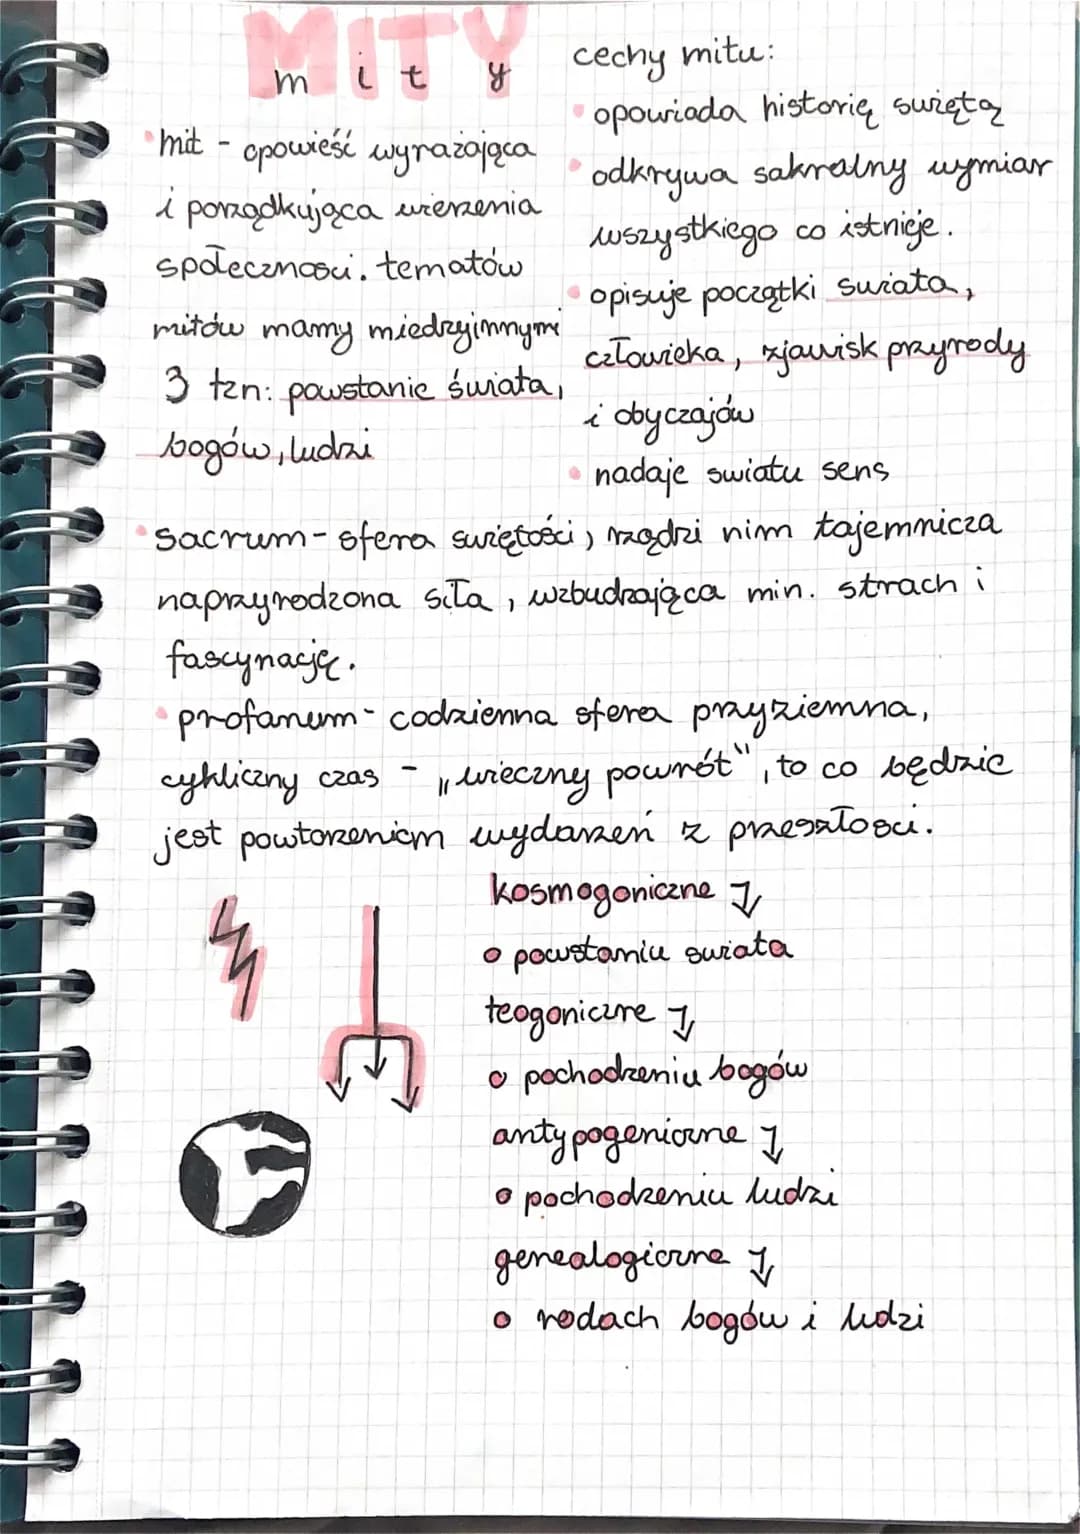 MITY
m i t y
• mit - opowieść wyrażająca
i porządkująca wierzenia
społeczności. tematów
mitów mamy miedzyinnymi
3 tzn: powstanie świata,
bogów, ludzi
cechy mitu:
• opowiada historię świętą
• odkrywa sakralny wymiar
wszystkiego co istnieje.
• opisuje początki świata,
człowieka, zjawisk przyrody
i obyczajów
• nadaje swiatu sens
• sacrum - sfera świętości, rządzi nim tajemnicza
naprzyrodzona siła, wzbudzająca min. strach i
fascynację.
• profanum - codzienna sfera przyziemna,
cykliczny czas - „wieczny powrót", to co będzie
jest powtorzeniem wydarzeń z przeszłosci.
kosmogoniczne
o powstaniu swiata
teogoniczne
o pochodzeniu bogów
antypogeniczne
o pochodzeniu ludzi
genealogiczne
o rodach bogów i ludzi